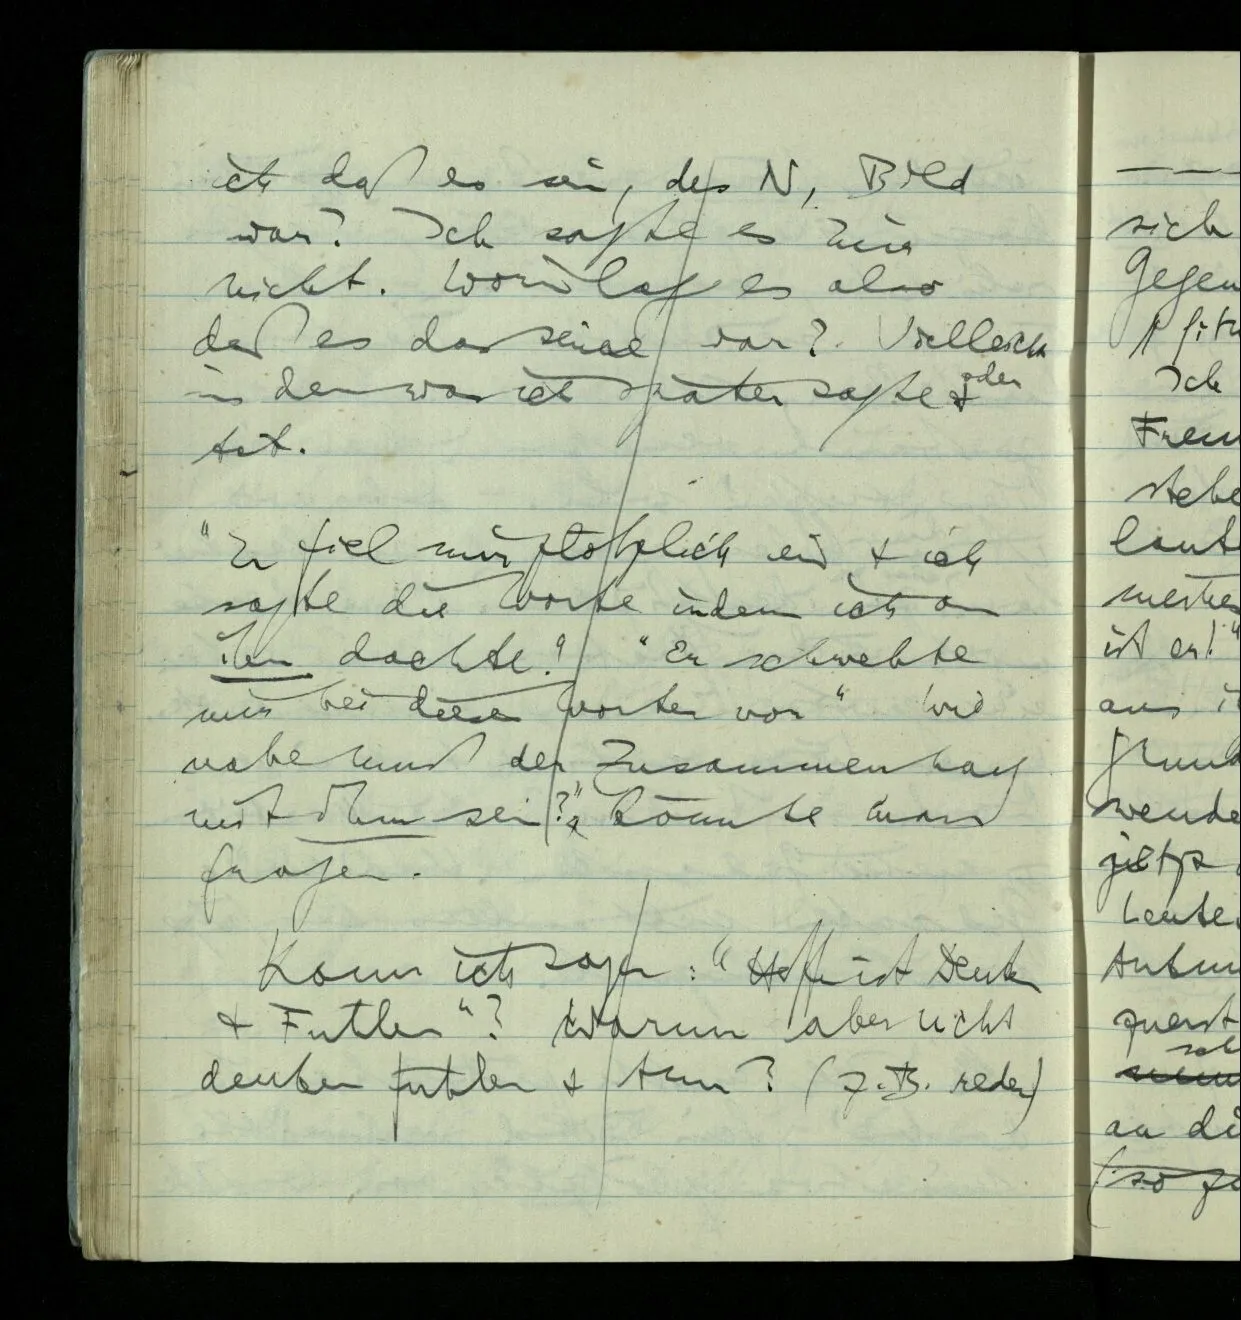 ich daß es sein, des N, Bild
war? Ich sagte es mir
nicht. Worin lag es also
daß es das seine war? Vielleicht
in dem was ich später sagte & oder
tat.
"Er fiel mir plötzlich ein & ich
sagte die Worte indem ich an
ihn dachte." "Er schwebte
mir bei diesen Worten vor" 'wie
nahe muß der Zusammenhang
mit ihm sein?" könnte man
fragen.
Kann ich sagen: "Hoffen ist Denken
& Fühlen"? Warum aber nicht
denken fühlen & tun? (z.B. reden)
sich
Gegen
Ich
laut
ist er!"
aus
wende
jetzt
Leute
zuerst
an di
(so